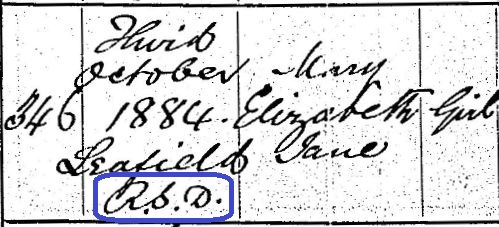 346
Third
October
1884.
Leafield
R.S.D.
Mary
Elizabeth
Jane
Girl